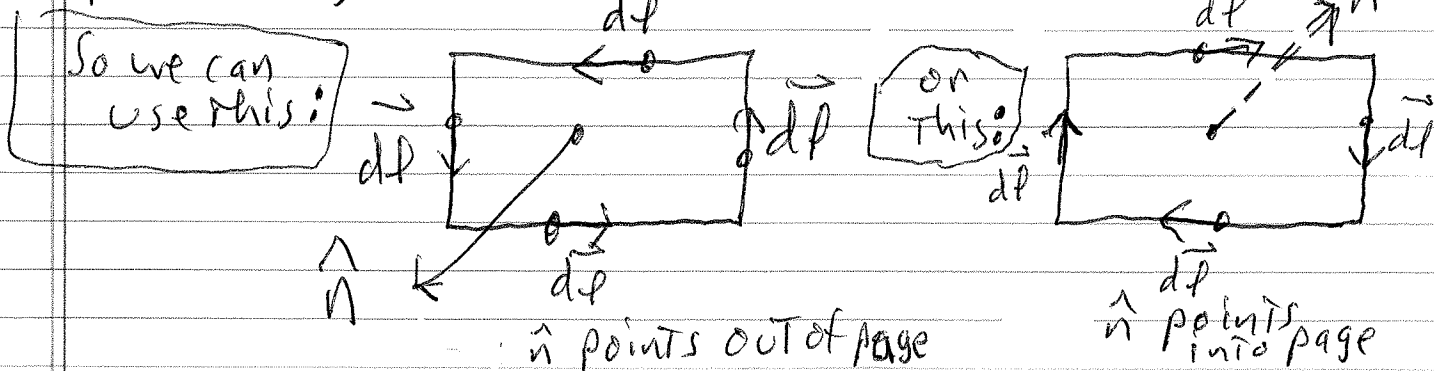 So we can
use this:
dl
dl
dl
dl
n̂
n̂ points out of page
or
this:
dl
dl
dl
dl
n̂
n̂ points
into page